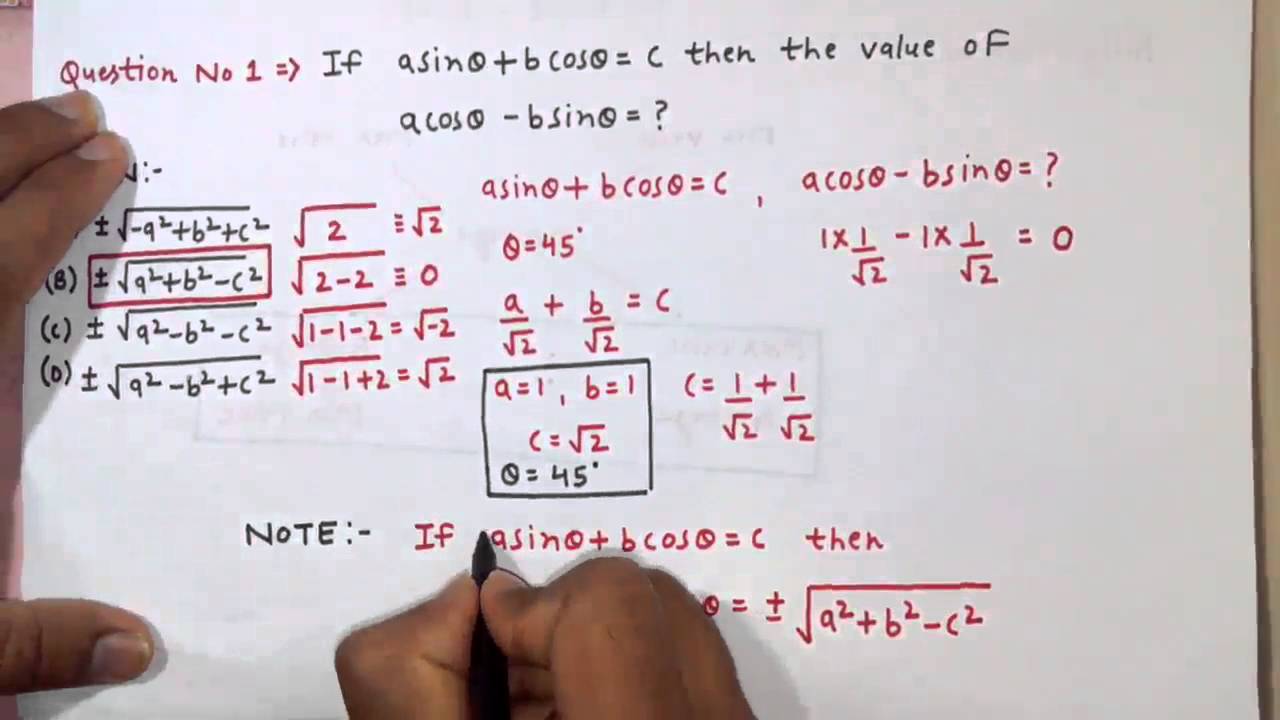 Question No 1 => If asinθ + b cosθ = c then the value oF
acosθ - bsinθ = ?
N:-
± √-a²+b²+c² √2 ≡ √2
(B) ± √a²+b²-c² √2-2 ≡ 0
(c) ± √a²-b²-c² √1-1-2 = √-2
(D) ± √a²-b²+c² √1-1+2 = √2
asinθ + b cosθ = c , acosθ - bsinθ = ?
θ = 45° 1×1/√2 - 1×1/√2 = 0
a/√2 + b/√2 = c
a=1 , b=1 c = 1/√2 + 1/√2
c = √2
θ = 45°
NOTE:- If asinθ + b cosθ = c then
θ = ± √a²+b²-c²